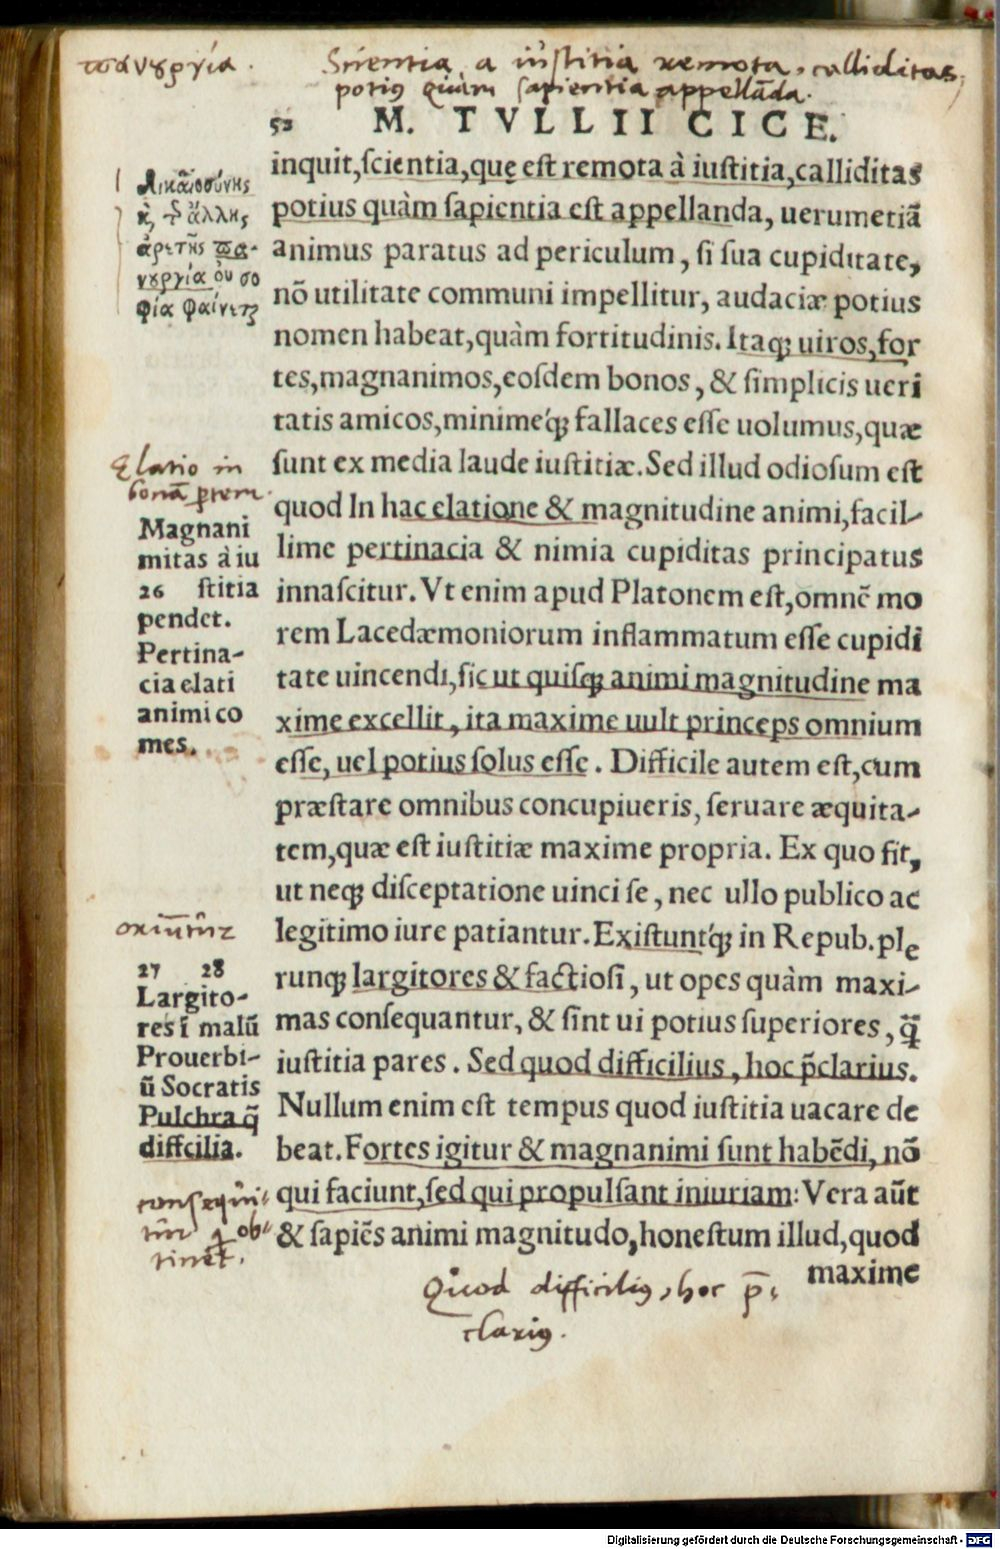 πανουργία.
Scientia a iustitia remota, calliditas
potius quàm sapientia appellāda.
52 M. TVLLII CICE.
inquit,scientia,quę est remota à iustitia,calliditas
potius quàm sapientia est appellanda, uerumetiā
animus paratus ad periculum, si sua cupiditate,
nō utilitate communi impellitur, audaciæ potius
nomen habeat,quàm fortitudinis. Itaq; uiros,for
tes,magnanimos,eosdem bonos, & simplicis ueri
tatis amicos,minime'q; fallaces esse uolumus,quæ
sunt ex media laude iustitiæ. Sed illud odiosum est
quod In hac elatione & magnitudine animi,facil-
lime pertinacia & nimia cupiditas principatus
innascitur. Vt enim apud Platonem est,omnē mo
rem Lacedæmoniorum inflammatum esse cupidi
tate uincendi,sic ut quisq; animi magnitudine ma
xime excellit, ita maxime uult princeps omnium
esse, uel potius solus esse. Difficile autem est,cum
præstare omnibus concupiueris, seruare æquita-
tem,quæ est iustitiæ maxime propria. Ex quo fit,
ut neq; disceptatione uinci se, nec ullo publico ac
legitimo iure patiantur. Existunt'q; in Repub. ple
runq; largitores & factiosi, ut opes quàm maxi-
mas consequantur, & sint ui potius superiores, q̄
iustitia pares. Sed quod difficilius, hoc p̄clarius.
Nullum enim est tempus quod iustitia uacare de
beat. Fortes igitur & magnanimi sunt habēdi, nō
qui faciunt,sed qui propulsant iniuriam: Vera aūt
& sapiēs animi magnitudo,honestum illud,quod
maxime
Δικαιοσύνης
κ̀, τ̃ ἄλλης
ἀρετῆς πα-
νουργία οὐ σο
φία φαίνετ
Elatio in
bonā ptem.
Magnani
mitas à iu
26 stitia
pendet.
Pertina-
cia elati
animi co
mes.
oriūtur
27 28
Largito-
res ī malū
Prouerbi-
ū Socratis
Pulchra q̄
diffcilia.
ob-
tinēt.
Quod difficilius, hoc p̄-
clarius.
Digitalisierung gefördert durch die Deutsche Forschungsgemeinschaft - DFG